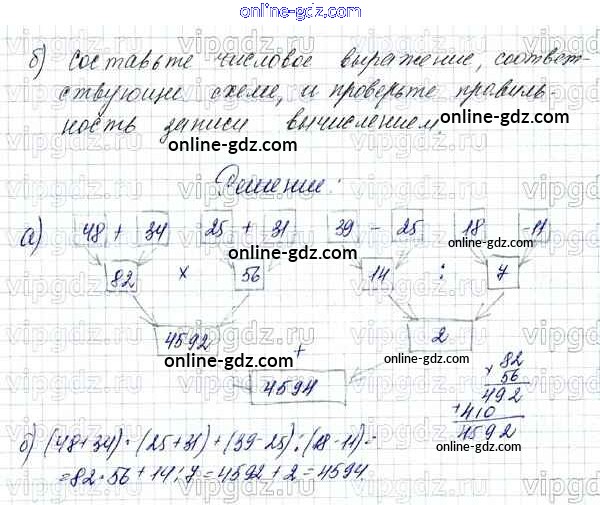 online-gdz.com
б) составьте числовое выражение, соответ-
ствующи схеме, и проверьте правиль-
ность записи вычислением.
online-gdz.com
Решение:
а) 48 + 34 25 + 31 39 - 25 18 - 11
online-gdz.com
82 x 56 14 : 7
4592 + 2
online-gdz.com
4594
x 82
56
492
+ 410
4592
б) (48+34)·(25+31)+(39-25):(18-11)=
=82·56+14:7=4592+2=4594.
online-gdz.com